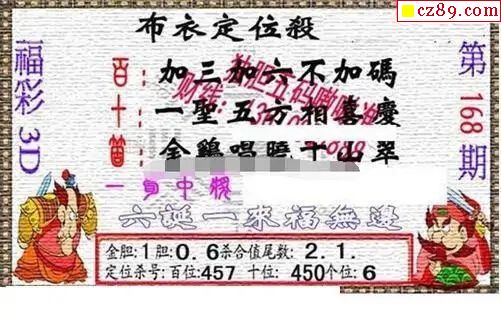 cz89.com
布衣定位殺
福彩3D
第168期
百：加三加六不加碼
十：一聖五方相喜慶
個：金鷄唱曉千山翠
一頁中獎
六誕一來福無邊
金胆:1胆:0.6杀合值尾数:2.1.
定位杀号:百位:457 十位:450个位:6